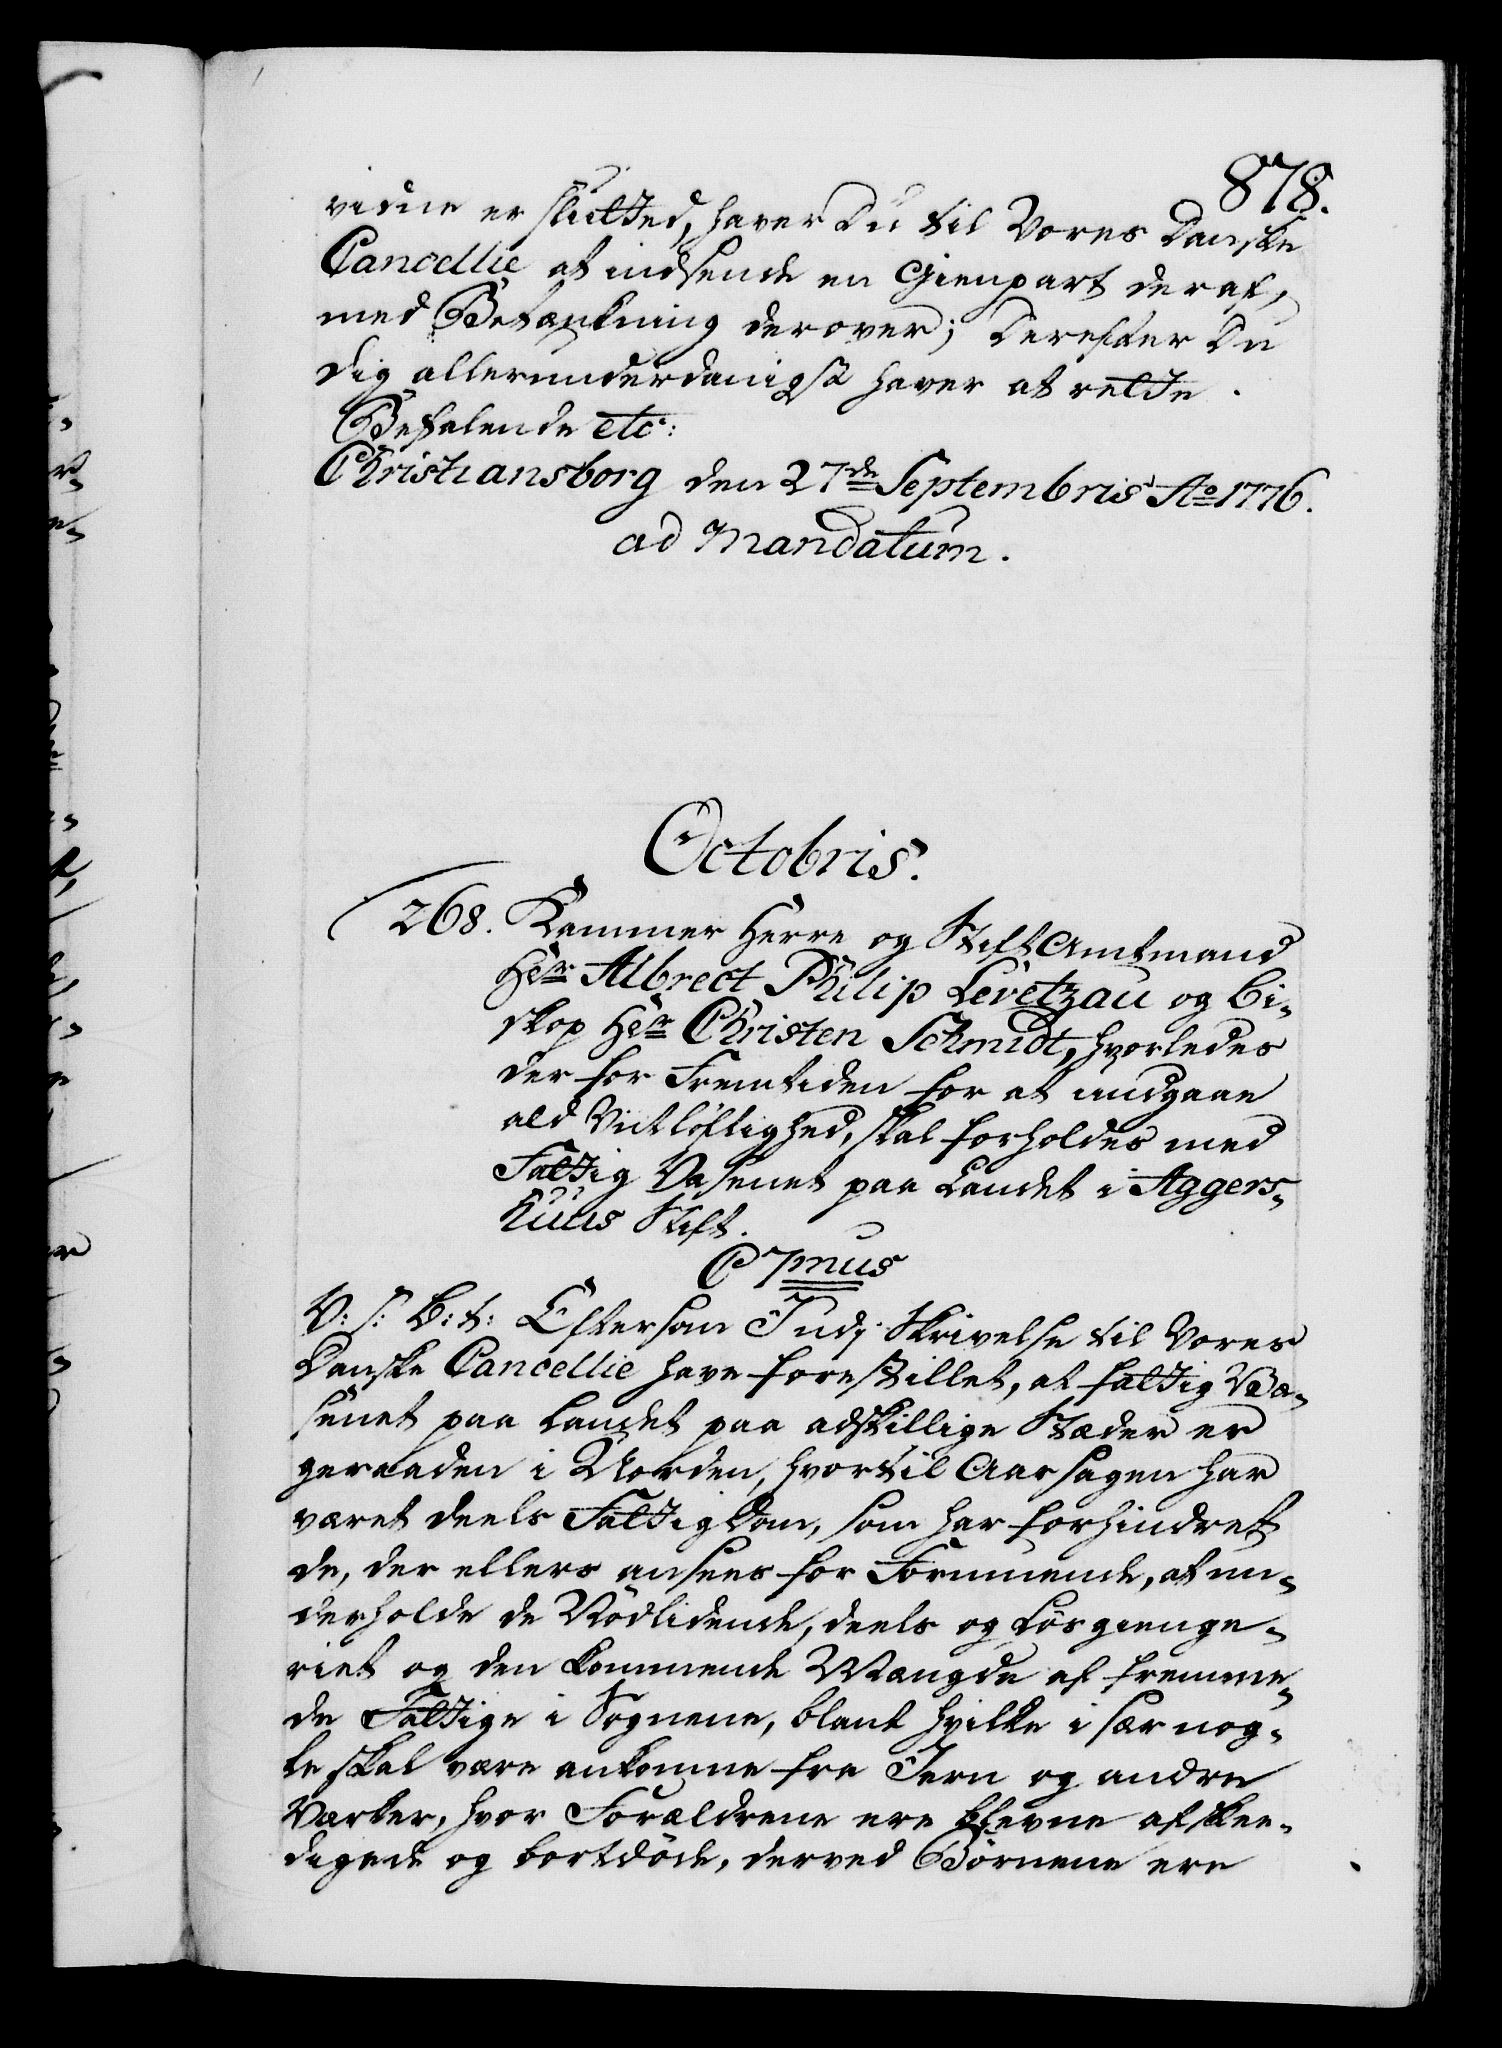 878.
vidne er slutted, haver Du til Vores Danske
Cancellie at indsende en Gienpart deraf,
med Betænkning derover; Derefter Du
dig allerunderdanigst haver at rette.
Befalende etc:
Christiansborg den 27de Septembris Ao 1776.
ad Mandatum.
Octobris.
268. Kammer Herre og Stift Amtmand
Her Albrect Philip Levetzau og Bi-
skop Her Christen Schmidt, hvorledes
der for Fremtiden for at undgaae
ald Vitløftighed, skal forholdes med
Fattig Væsenet paa Landet i Aggers-
huus Stift.
C 7mus
V: S: B: t: Eftersom I udj Skrivelse til Vores
Danske Cancellie have forestillet, at fattig Væ-
senet paa Landet paa adskillige Stæder er
geraaden i Uorden, hvortil Aarsagen har
været deels Fattigdom, som har forhindret
de, der ellers ansees for Formuende, at un-
derholde de Nödlidende, deels og Lösgienge-
riet og den kommende Mængde af fremme-
de Fattige i Sognene, blant hvilke i sær nog-
le skal være ankomne fra Jern og andre
Værker, hvor Forældrene ere blevne afskee-
digede og bortdöde, derved Börnene ere